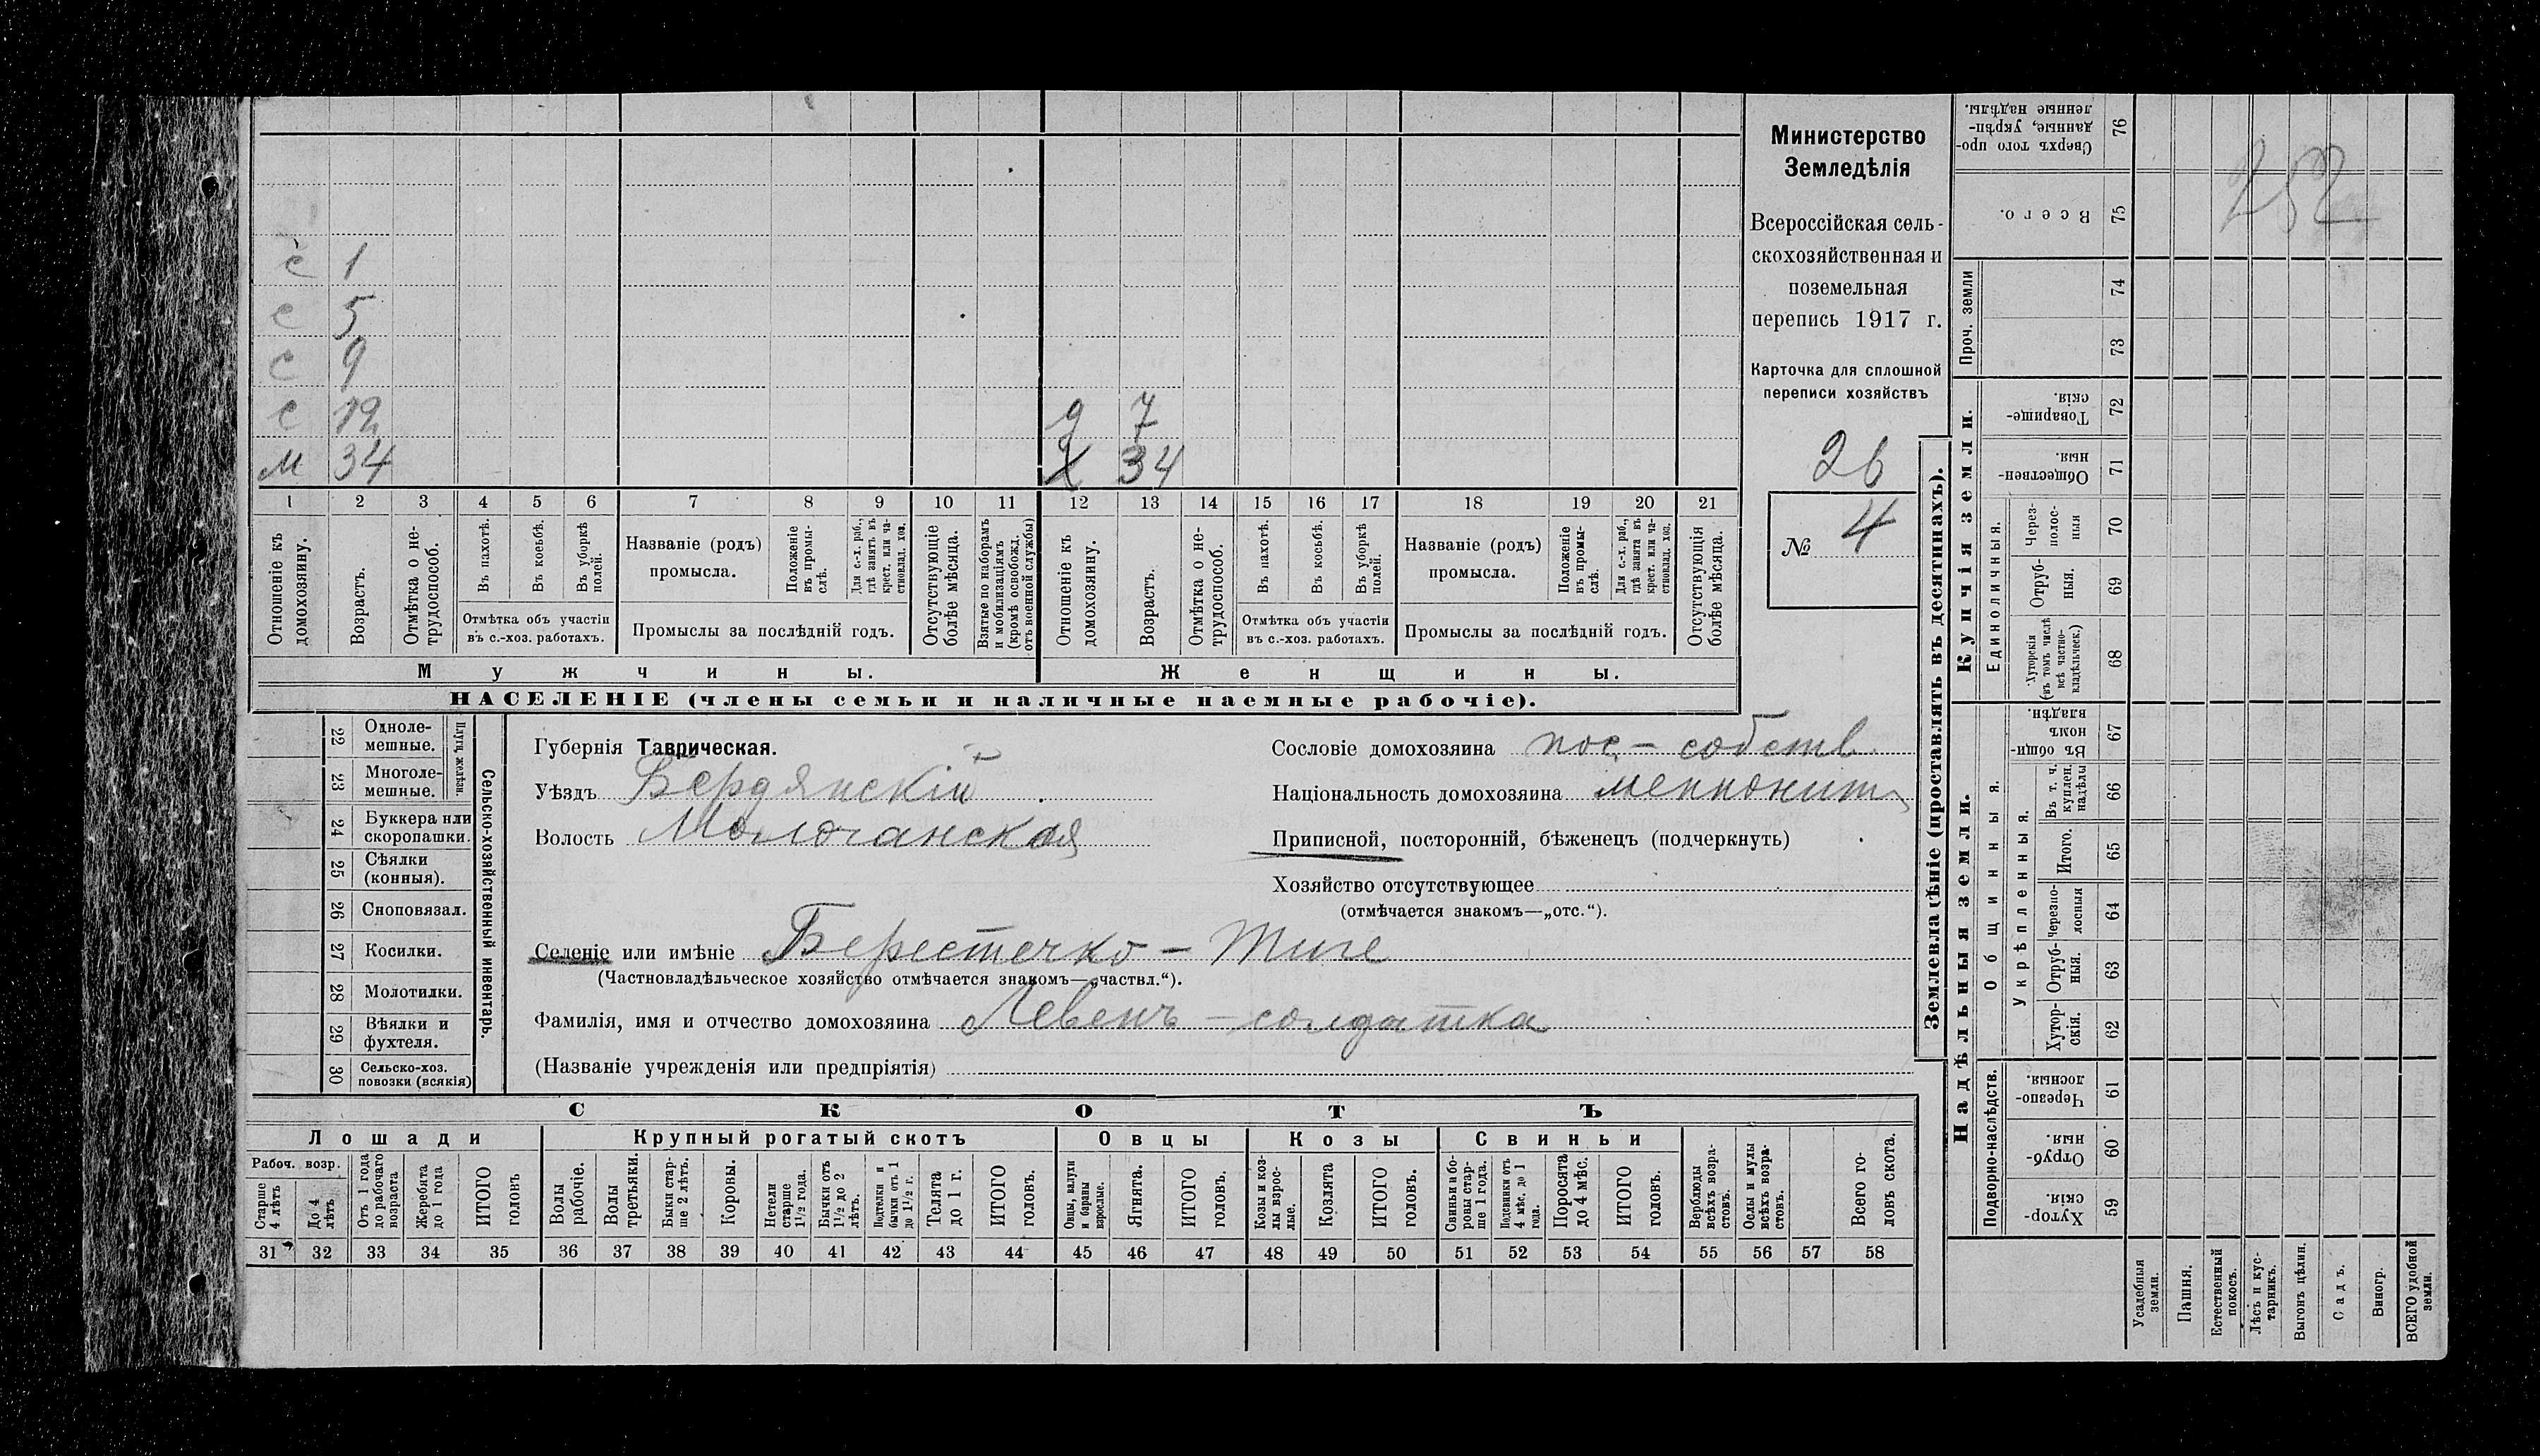 с 1
с 5
с 9
с 12
м 34
7
34
1 2 3 4 5 6 7 8 9 10 11 12 13 14 15 16 17 18 19 20 21
Отношеніе къ домохозяину.
Возрастъ.
Отмѣтка о нетрудоспособ.
Въ пахотѣ.
Въ косьбѣ.
Въ уборкѣ полей.
Отмѣтка объ участіи
въ с.-хоз. работахъ.
Названіе (родъ)
промысла.
Положеніе въ промыслѣ.
Для с.-х. раб., гдѣ занятъ въ крест. или частновлад. хоз.
Промыслы за послѣдній годъ.
Отсутствующіе болѣе мѣсяца.
Взятые по наборамъ и мобилизаціямъ (кромѣ освобожд. отъ военной службы)
Отношеніе къ домохозяину.
Возрастъ.
Отмѣтка о нетрудоспособ.
Въ пахотѣ.
Въ косьбѣ.
Въ уборкѣ полей.
Отмѣтка объ участіи
въ с.-хоз. работахъ.
Названіе (родъ)
промысла.
Положеніе въ промыслѣ.
Для с.-х. раб., гдѣ занята въ крест. или частновлад. хоз.
Промыслы за послѣдній годъ.
Отсутствующія болѣе мѣсяца.
Мужчины.
Женщины.
НАСЕЛЕНІЕ (члены семьи и наличные наемные рабочіе).
Министерство
Земледѣлія
Всероссійская сель-
скохозяйственная и
поземельная
перепись 1917 г.
Карточка для сплошной
переписи хозяйствъ
26
№ 4
22 Одноле-
мешные.
23 Многоле-
мешные.
Плуги желѣзн.
24 Буккера или
скоропашки.
25 Сѣялки
(конныя).
26 Сноповязал.
27 Косилки.
28 Молотилки.
29 Вѣялки и
фухтеля.
30 Сельско-хоз.
повозки (всякія)
Сельско-хозяйственный инвентарь.
Губернія Таврическая.
Уѣздъ Бердянскій
Волость Молочанская
Сословіе домохозяина пос-собств.
Національность домохозяина меннонит
Приписной, посторонній, бѣженецъ (подчеркнуть)
Хозяйство отсутствующее
(отмѣчается знакомъ—„отс.“).
Селеніе или имѣніе Берестечко - Тиге
(Частновладѣльческое хозяйство отмѣчается знакомъ—„частвл.“).
Фамилія, имя и отчество домохозяина Левенъ - солдатка
(Названіе учрежденія или предпріятія)
СКОТЪ
Лошади
Крупный рогатый скотъ
Овцы
Козы
Свиньи
Рабоч. возр.
Старше 4 лѣтъ
До 4 лѣтъ
Отъ 1 года до рабочаго возраста
Жеребята до 1 года
ИТОГО головъ
Волы рабочіе.
Волы третьяки.
Быки старше 2 лѣтъ.
Коровы.
Нетели старше 1 1/2 года.
Бычки отъ 1 1/2 до 2 лѣтъ.
Подтелки и бычки отъ 1 до 1 1/2 г.
Телята до 1 г.
ИТОГО головъ.
Овцы, валухи и бараны взрослые.
Ягнята.
ИТОГО головъ.
Козы и козлы взрослые.
Козлята
ИТОГО головъ.
Свиньи и боровы старше 1 года.
Подсвинки отъ 4 мѣс. до 1 года.
Поросята до 4 мѣс.
ИТОГО головъ.
Верблюды всѣхъ возрастовъ.
Ослы и мулы всѣхъ возрастовъ.
Всего головъ скота.
31 32 33 34 35 36 37 38 39 40 41 42 43 44 45 46 47 48 49 50 51 52 53 54 55 56 57 58
Землевладѣніе (проставлять въ десятинахъ).
Купчія земли.
Надѣльныя земли.
Сверхъ того проданные, укрѣпленные надѣлы. 76
Всего. 75
Проч. земли
74
73
Товарищескія. 72
Общественныя. 71
Единоличныя.
Черезполосныя 70
Отрубныя. 69
Хуторскія (въ томъ числѣ всѣ частновладѣльческ.) 68
Общинныя.
Въ общинномъ владѣн. 67
Укрѣпленныя.
Въ т. ч. куплен. надѣлы 66
Итого. 65
Черезполосныя 64
Отрубныя. 63
Хуторскія. 62
Подворно-наслѣдств.
Черезполосныя. 61
Отрубныя. 60
Хуторскія. 59
Усадебныя земли.
Пашня.
Естественный покосъ.
Лѣсъ и кустарникъ.
Выгонъ цѣлин.
Садъ.
Виногр.
ВСЕГО удобной земли.
252